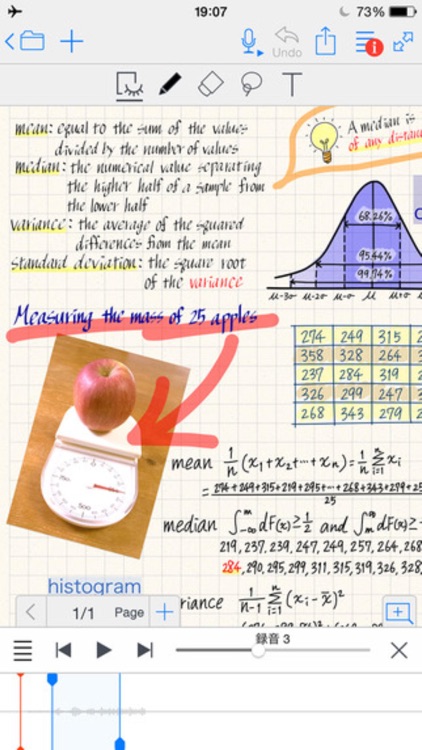 19:07
73%
Undo
T
mean: equal to the sum of the values
divided by the number of values
median: the numerical value separating
the higher half of a sample from
the lower half
variance: the average of the squared
differences from the mean
standard deviation: the square root
of the variance
A median is
of any
68.26%
95.44%
99.74%
μ-3σ μ-2σ μ-σ μ μ+σ
Measuring the mass of 25 apples
274 249 315
358 328 264
237 284 319
326 299 247
268 343 279
mean 1/n (x₁+x₂+⋯+xₙ)=1/n Σ xᵢ
= 274+249+315+219+295+⋯+268+343+279+
25
median ∫ dF(x)≥1/2 and ∫ dF(x)≥
219,237,239,247,249,257,264,268
284,290,295,299,311,315,319,326,328
histogram
riance 1/n-1 Σ (xᵢ-x̄)²
1/1 Page
録音 3